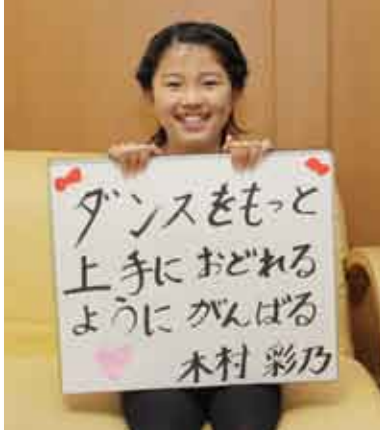 ダンスをもっと
上手に おどれる
ように がんばる
木村 彩乃